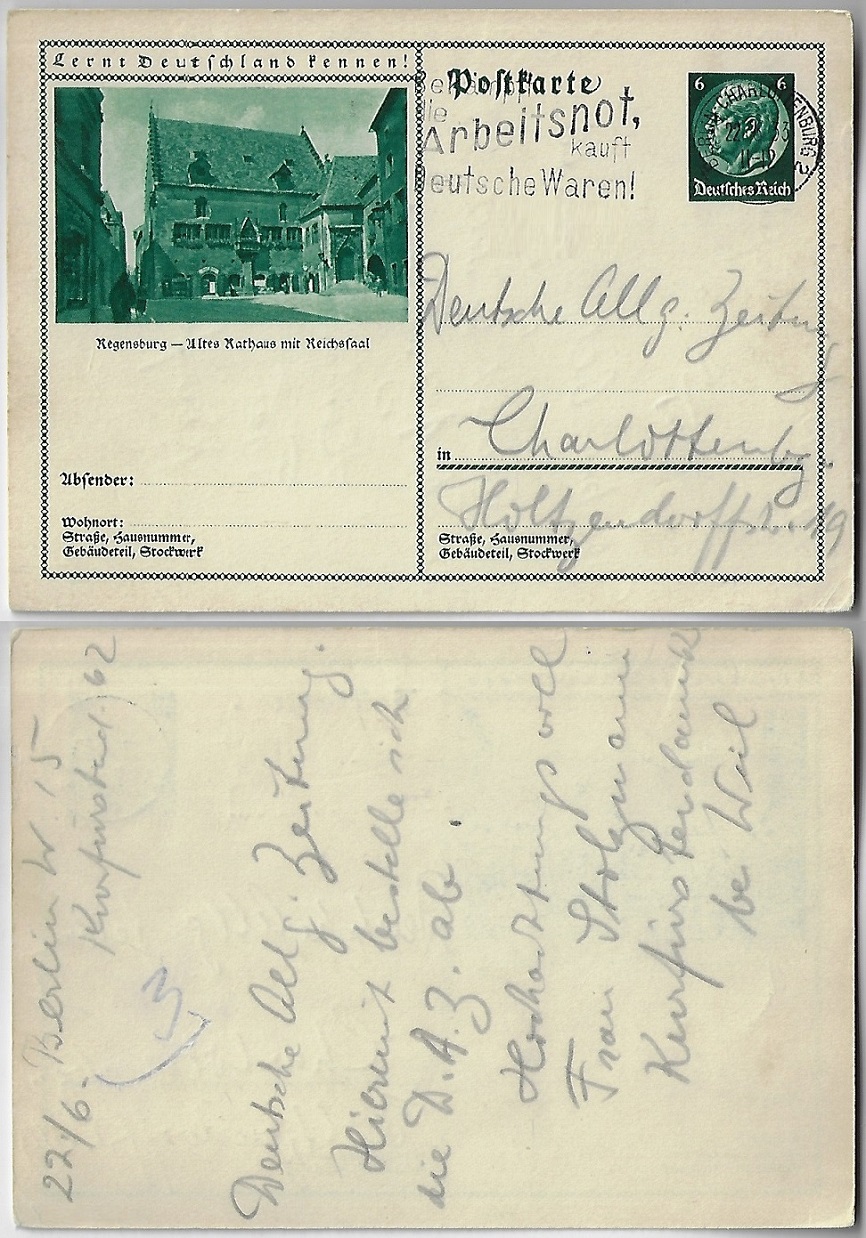 Lernt Deutschland kennen!
Regensburg — Altes Rathaus mit Reichssaal
Absender:
Wohnort:
Straße, Hausnummer,
Gebäudeteil, Stockwerk
Postkarte
Bekämpft
die
Arbeitsnot,
kauft
Deutsche Waren!
6 6
BERLIN-CHARLOTTENBURG 2
22.6.33
11-12
Deutsches Reich
Deutsche Allg. Zeitung
in Charlottenbg.
Holtzendorffstr. 19
Straße, Hausnummer,
Gebäudeteil, Stockwerk
22/6. Berlin W. 15
Kurfürstend. 62
Deutsche Allg. Zeitung.
Hiermit bestelle ich
die D.A.Z. ab.
Hochachtungsvoll
Frau Stolzmann
Kurfürstendamm 62
bei Weil